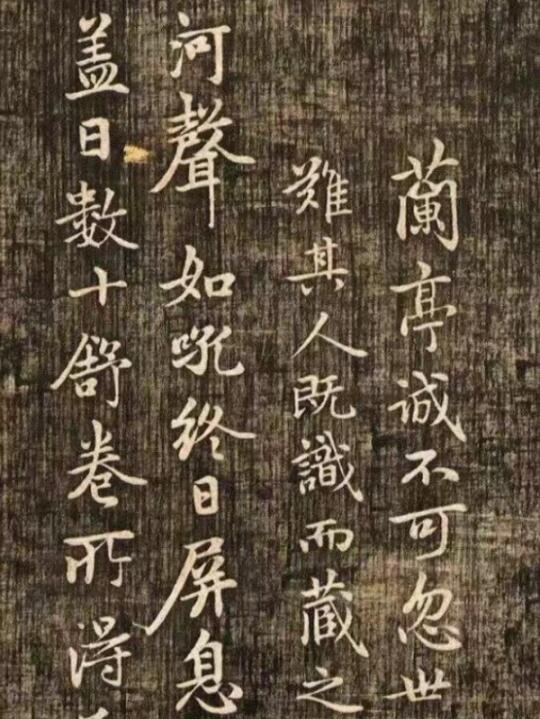 蘭亭誠不可忽世
難其人既識而蔵之
河聲如吼終日屏息
盖日數十舒卷所得